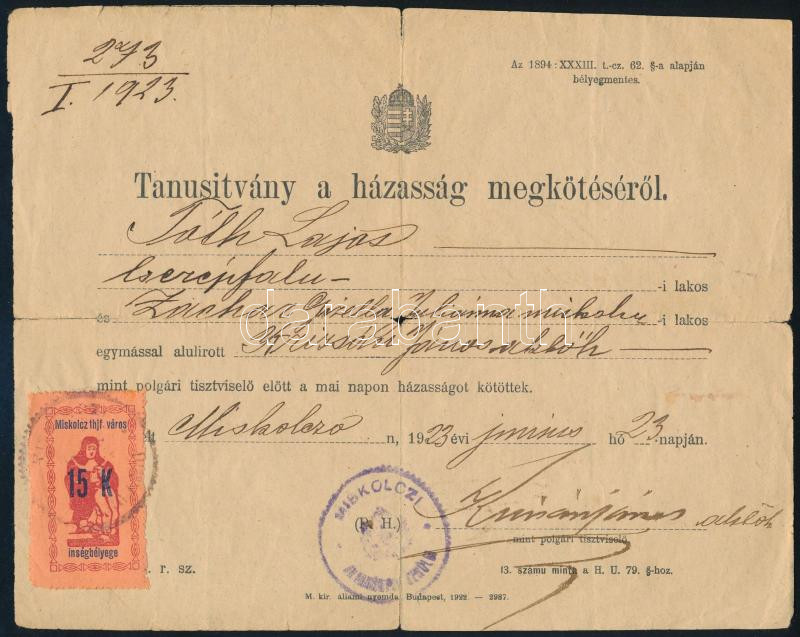 273
I. 1923.
Az 1894 : XXXIII. t.-cz. 62. §-a alapján
bélyegmentes.
Tanusitvány a házasság megkötéséről.
Tóth Lajos
Cserépfalu- -i lakos
és Zachar Gizella Julianna miskolcz -i lakos
darabanth
egymással alulirott János
mint polgári tisztviselő előtt a mai napon házasságot kötöttek.
Miskolcz thjf. város
15 K
inségbélyege
lt Miskolczo n, 1923 évi junius hó 23 napján.
MISKOLCZI
(P. H.)
mint polgári tisztviselő.
. r. sz.
13. számu minta a H. U. 79. §-hoz.
M. kir. állami nyomda. Budapest, 1922. — 2987.